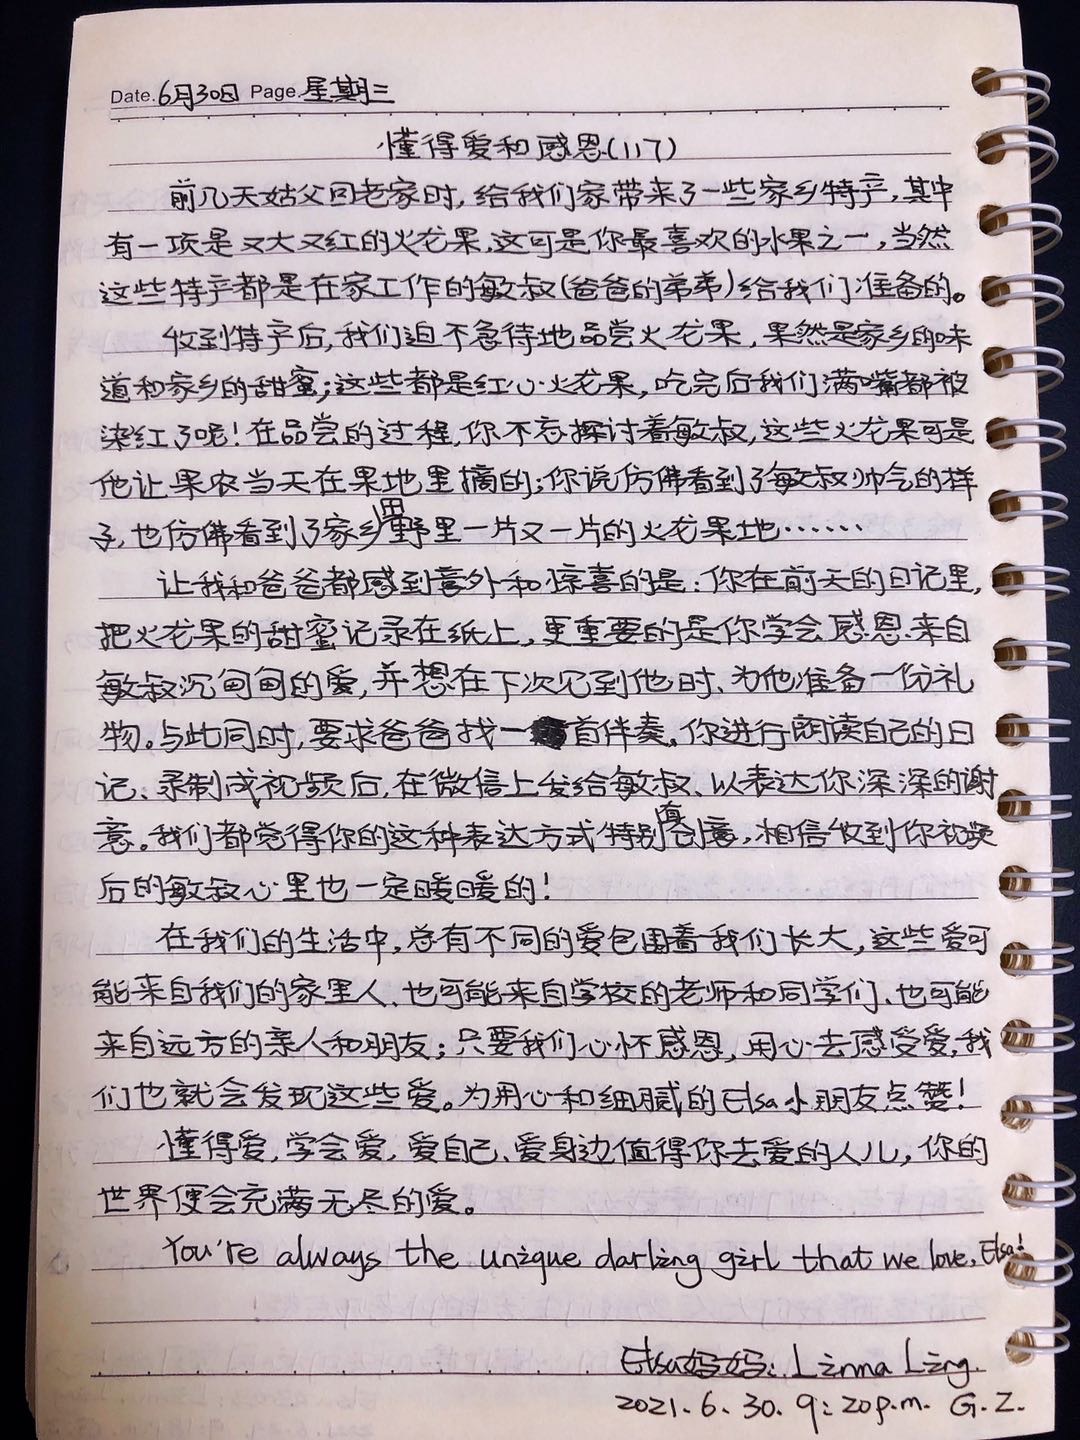 Date.6月30日 Page.星期三
懂得爱和感恩(117)
前几天姑父回老家时,给我们家带来了一些家乡特产,其中
有一项是又大又红的火龙果,这可是你最喜欢的水果之一,当然
这些特产都是在家工作的敏叔(爸爸的弟弟)给我们准备的。
收到特产后,我们迫不急待地品尝火龙果,果然是家乡的味
道和家乡的甜蜜;这些都是红心火龙果,吃完后我们满嘴都被
染红了呢!在品尝的过程,你不忘探讨着敏叔,这些火龙果可是
他让果农当天在果地里摘的;你说仿佛看到了敏叔帅气的样
子,也仿佛看到了家乡田野里一片又一片的火龙果地……
让我和爸爸都感到意外和惊喜的是:你在前天的日记里,
把火龙果的甜蜜记录在纸上,更重要的是你学会感恩来自
敏叔沉甸甸的爱,并想在下次见到他时、为他准备一份礼
物。与此同时,要求爸爸找一首伴奏,你进行朗读自己的日
记、录制成视频后,在微信上发给敏叔、以表达你深深的谢
意。我们都觉得你的这种表达方式特别有创意,相信收到你视频
后的敏叔心里也一定暖暖的!
在我们的生活中,总有不同的爱包围着我们长大,这些爱可
能来自我们的家里人、也可能来自学校的老师和同学们、也可能
来自远方的亲人和朋友;只要我们心怀感恩,用心去感受爱,我
们也就会发现这些爱。为用心和细腻的Elsa小朋友点赞!
懂得爱,学会爱,爱自己、爱身边值得你去爱的人儿,你的
世界便会充满无尽的爱。
You're always the unique darling girl that we love, Elsa!
Elsa妈妈:Linna Ling.
2021.6.30.9:20p.m. G.Z.